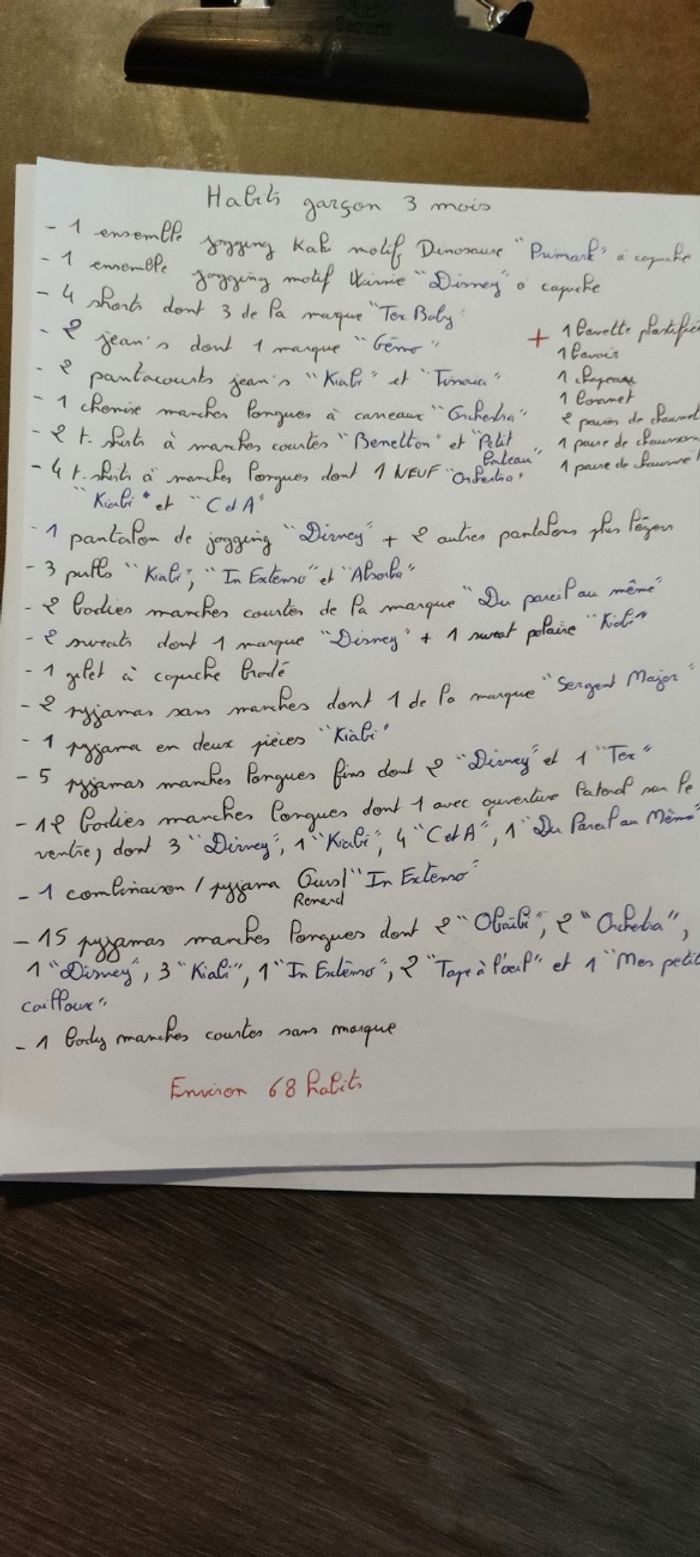 Habits garçon 3 mois
- 1 ensemble jogging Kaki motif Dinosaure "Primark" à capuche
- 1 ensemble jogging motif Winnie "Disney" à capuche
- 4 shorts dont 3 de la marque "Tex Baby"
- 2 jean's dont 1 marque "Gémo"
- 2 pantacourts jean's "Kiabi" et
- 1 chemise manches longues à carreaux "Orchestra"
- 2 t.shirts à manches courtes "Benetton" et "Petit
Bateau"
- 4 t.shirts à manches longues dont 1 NEUF "Orchestra"
"Kiabi" et "C et A"
+ 1 bavette plastifiée
1 bavoir
1 chapeau
1 bonnet
2 paires de
1 paire de
1 paire de
- 1 pantalon de jogging "Disney" + 2 autres pantalons plus légers
- 3 pulls "Kiabi", "In Extenso" et "Absorba"
- 2 bodies manches courtes de la marque "Du pareil au même"
- 2 sweats dont 1 marque "Disney" + 1 sweat polaire "Kiabi"
- 1 gilet à capuche brodé
- 2 pyjamas sans manches dont 1 de la marque "Sergent Major"
- 1 pyjama en deux pièces "Kiabi"
- 5 pyjamas manches longues fins dont 2 "Disney" et 1 "Tex"
- 12 bodies manches longues dont 1 avec ouverture latéral sur le
ventre, dont 3 "Disney", 1 "Kiabi", 4 "C et A", 1 "Du Pareil au Même"
- 1 combinaison / pyjama "In Extenso"
Renard
- 15 pyjamas manches longues dont 2 "Obaïbi", 2 "Orchestra",
1 "Disney", 3 "Kiabi", 1 "In Extenso", 2 "Tape à l'œil" et 1 "Mes petits
cailloux"
- 1 body manches courtes sans marque
Environ 68 habits